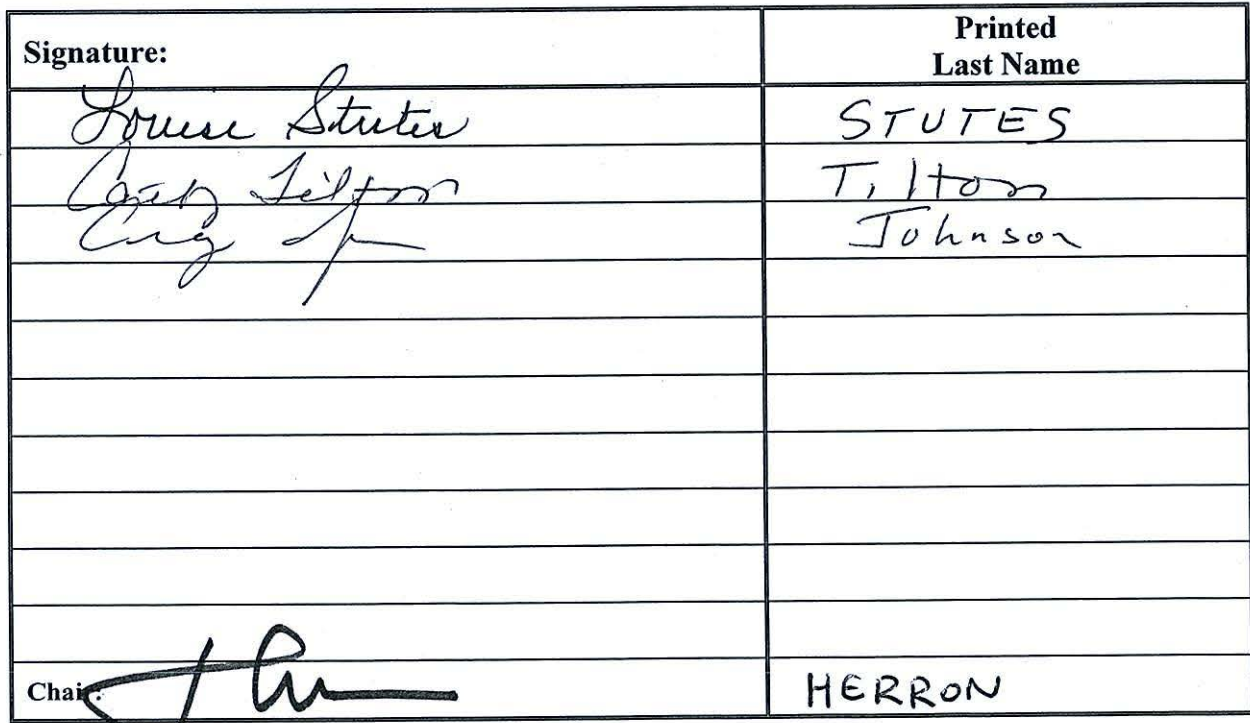 Signature: Printed Last Name
Louise Stutes STUTES
Cathy Tilton Tilton
Johnson
Chair: HERRON